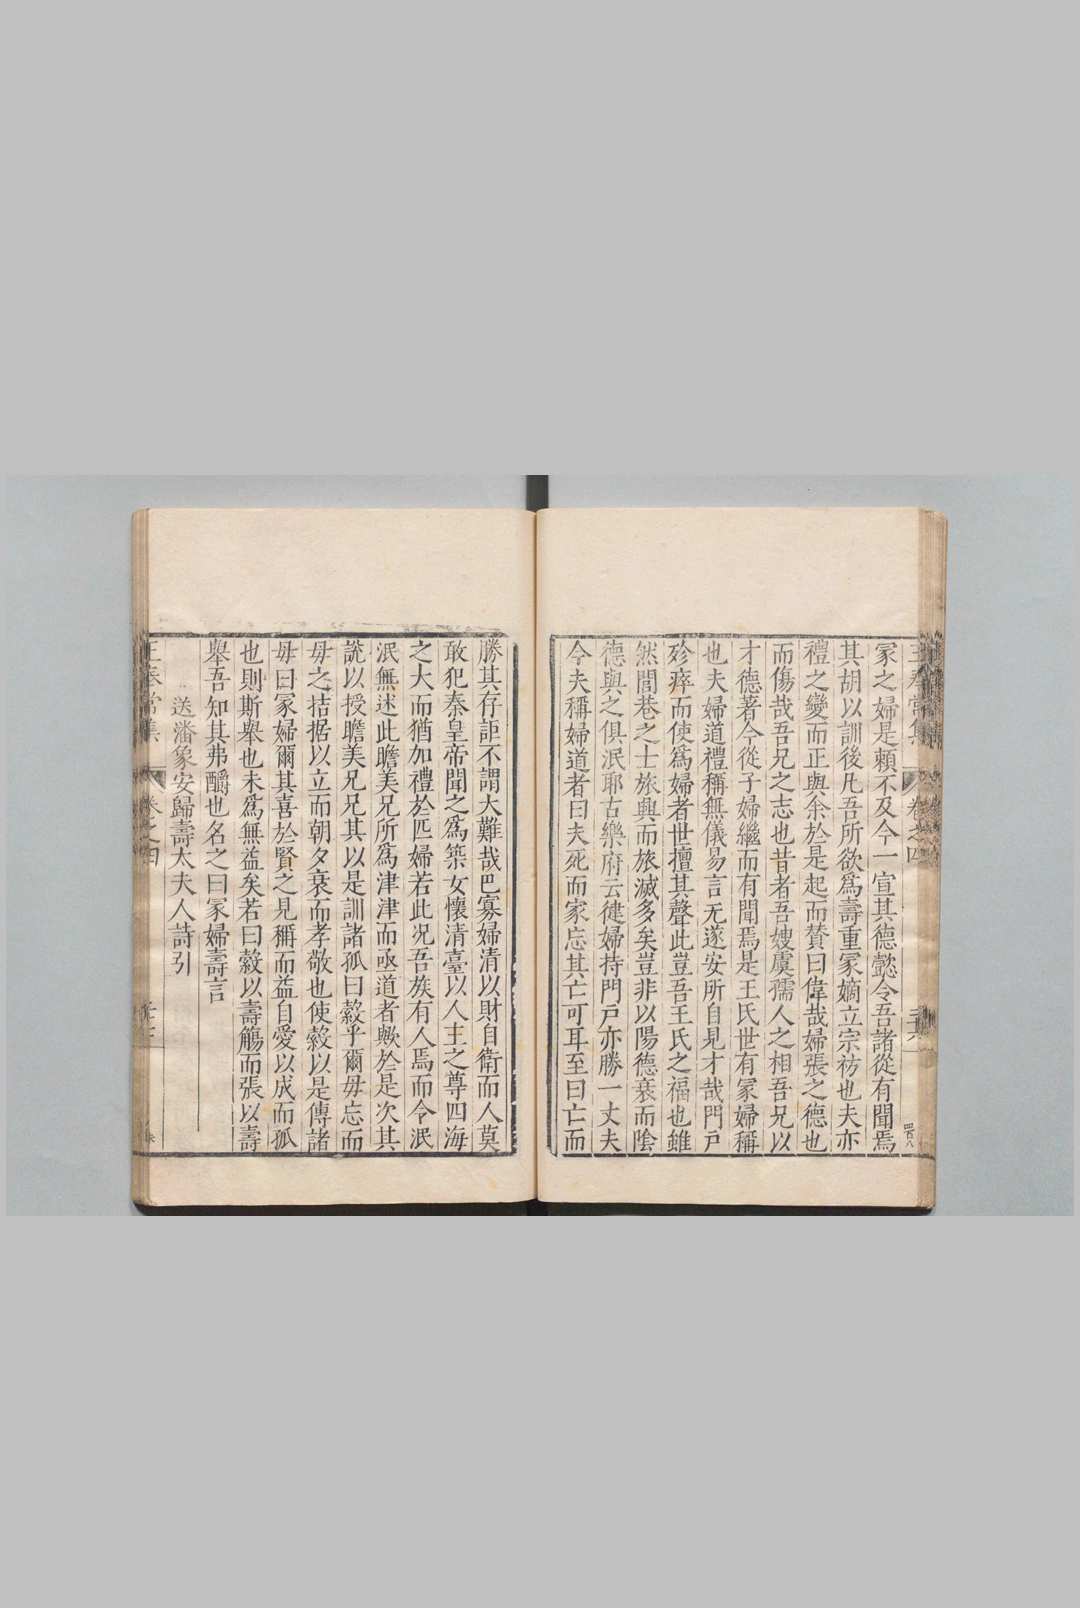 王奉常集 卷之四
冡之婦是賴不及今一宣其德懿令吾諸從有聞焉
其胡以訓後凡吾所欲爲壽重冡嫡立宗祊也夫亦
禮之變而正與余於是起而賛曰偉哉婦張之德也
而傷哉吾兄之志也昔者吾嫂虞孺人之相吾兄以
才德著今從子婦繼而有聞焉是王氏世有冡婦稱
也夫婦道禮稱無儀易言无遂安所自見才哉門戸
殄瘁而使爲婦者世擅其聲此豈吾王氏之福也雖
然閭巷之士旅興而旅滅多矣豈非以陽德衰而陰
德與之俱泯耶古樂府云健婦持門戸亦勝一丈夫
今夫稱婦道者曰夫死而家忘其亡可耳至曰亡而
勝其存詎不謂大難哉巴寡婦清以財自衛而人莫
敢犯秦皇帝聞之爲築女懷清臺以人主之尊四海
之大而猶加禮於匹婦若此况吾族有人焉而令泯
泯無述此瞻美兄所爲津津而亟道者歟於是次其
說以授瞻美兄兄其以是訓諸孤曰穀乎爾毋忘而
母之拮据以立而朝夕衰而孝敬也使穀以是傳諸
母曰冡婦爾其喜於賢之見稱而益自愛以成而孤
也則斯舉也未爲無益矣若曰穀以壽觴而張以壽
舉吾知其弗釂也名之曰冡婦壽言
送潘象安歸壽太夫人詩引
王奉常集 卷之四